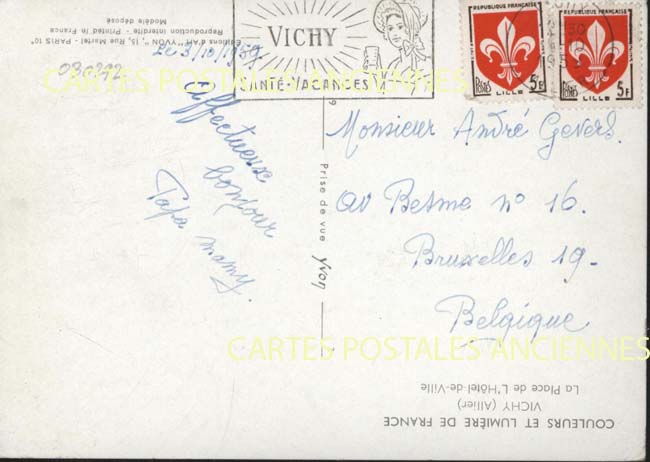 Editions d'Art "YVON", 15, Rue Martel - PARIS 10e
Reproduction interdite - Printed in France
Modèle déposé
VICHY
SANTÉ-VACANCES
REPUBLIQUE FRANÇAISE
POSTES
5F
LILLE
REPUBLIQUE FRANÇAISE
POSTES
5F
LILLE
le 3/10/1959
CARTES POSTALES ANCIENNES
affectueux
bonjour
Papa mamy.
Prise de vue yvon
Monsieur André Gevers.
av Besme n° 16.
Bruxelles 19-
Belgique
CARTES POSTALES ANCIENNES
COULEURS ET LUMIÈRE DE FRANCE
VICHY (Allier)
La Place de L'Hôtel-de-Ville